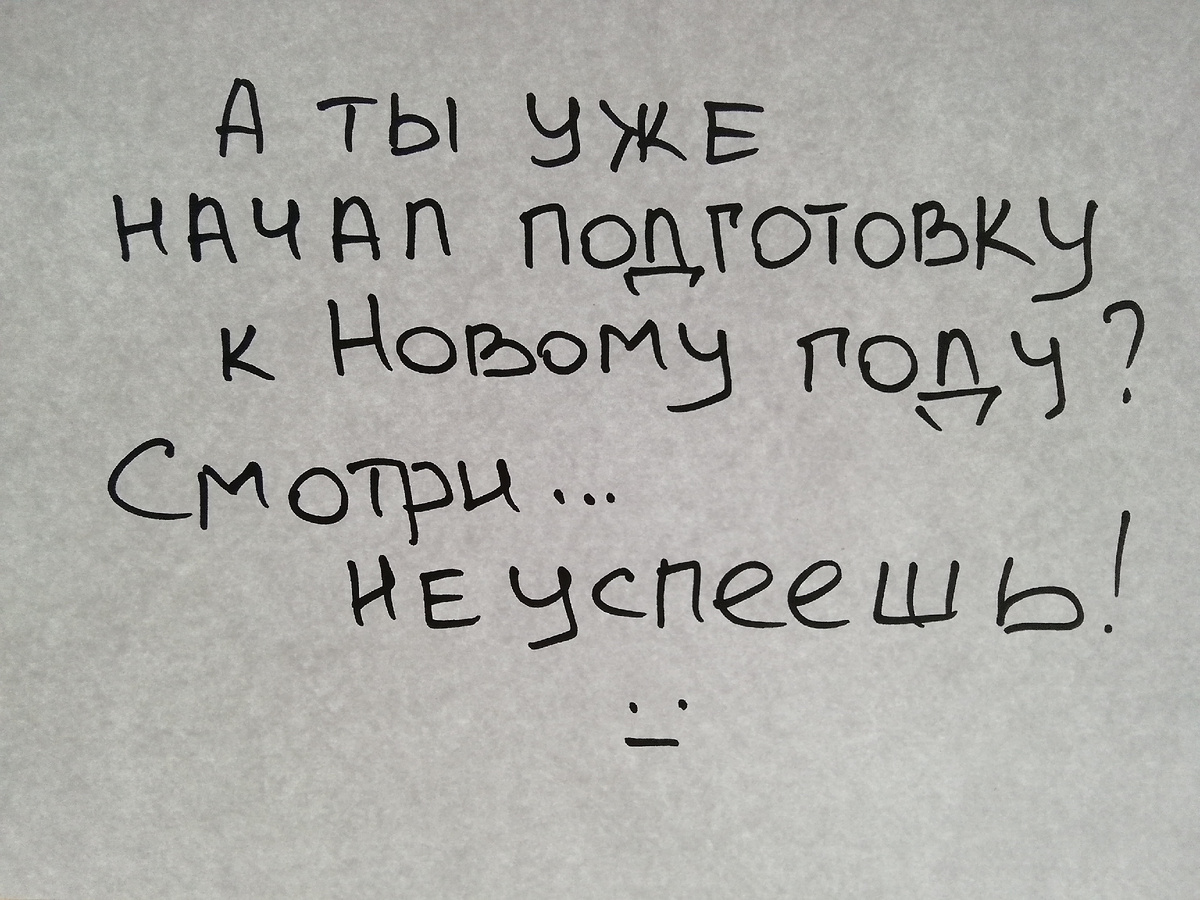 А ты уже
начал подготовку
к Новому году?
Смотри...
не успеешь!